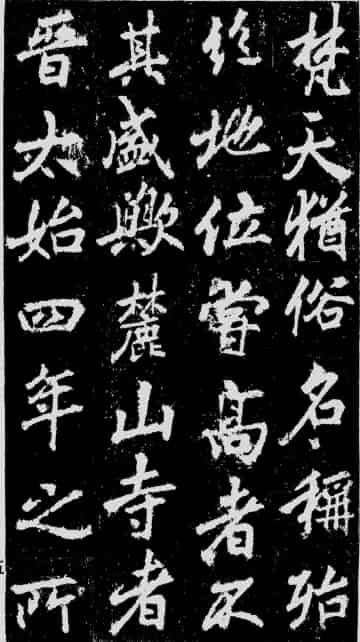 梵天猶俗名稱殆
絕地位嘗高者不
其盛歟麓山寺者
晉太始四年之所